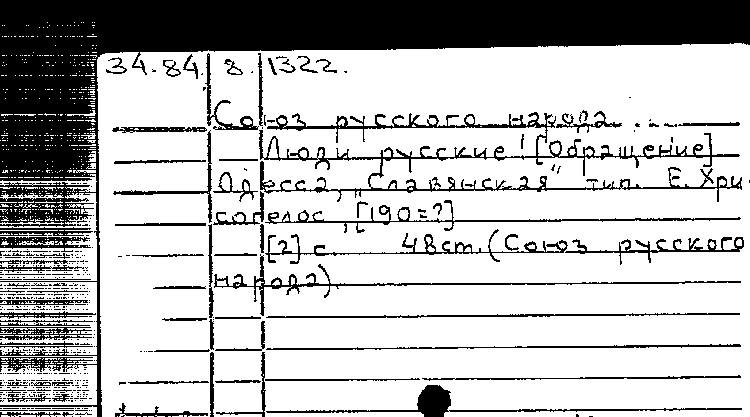 34.84. 8. 1322.
Союз русского народа...
Люди русские! [Обращение]
Одесса, „Славянская“ тип. Е. Хри-
согелос, [190=?]
[2] с. 48 ст. (Союз русского
народа).